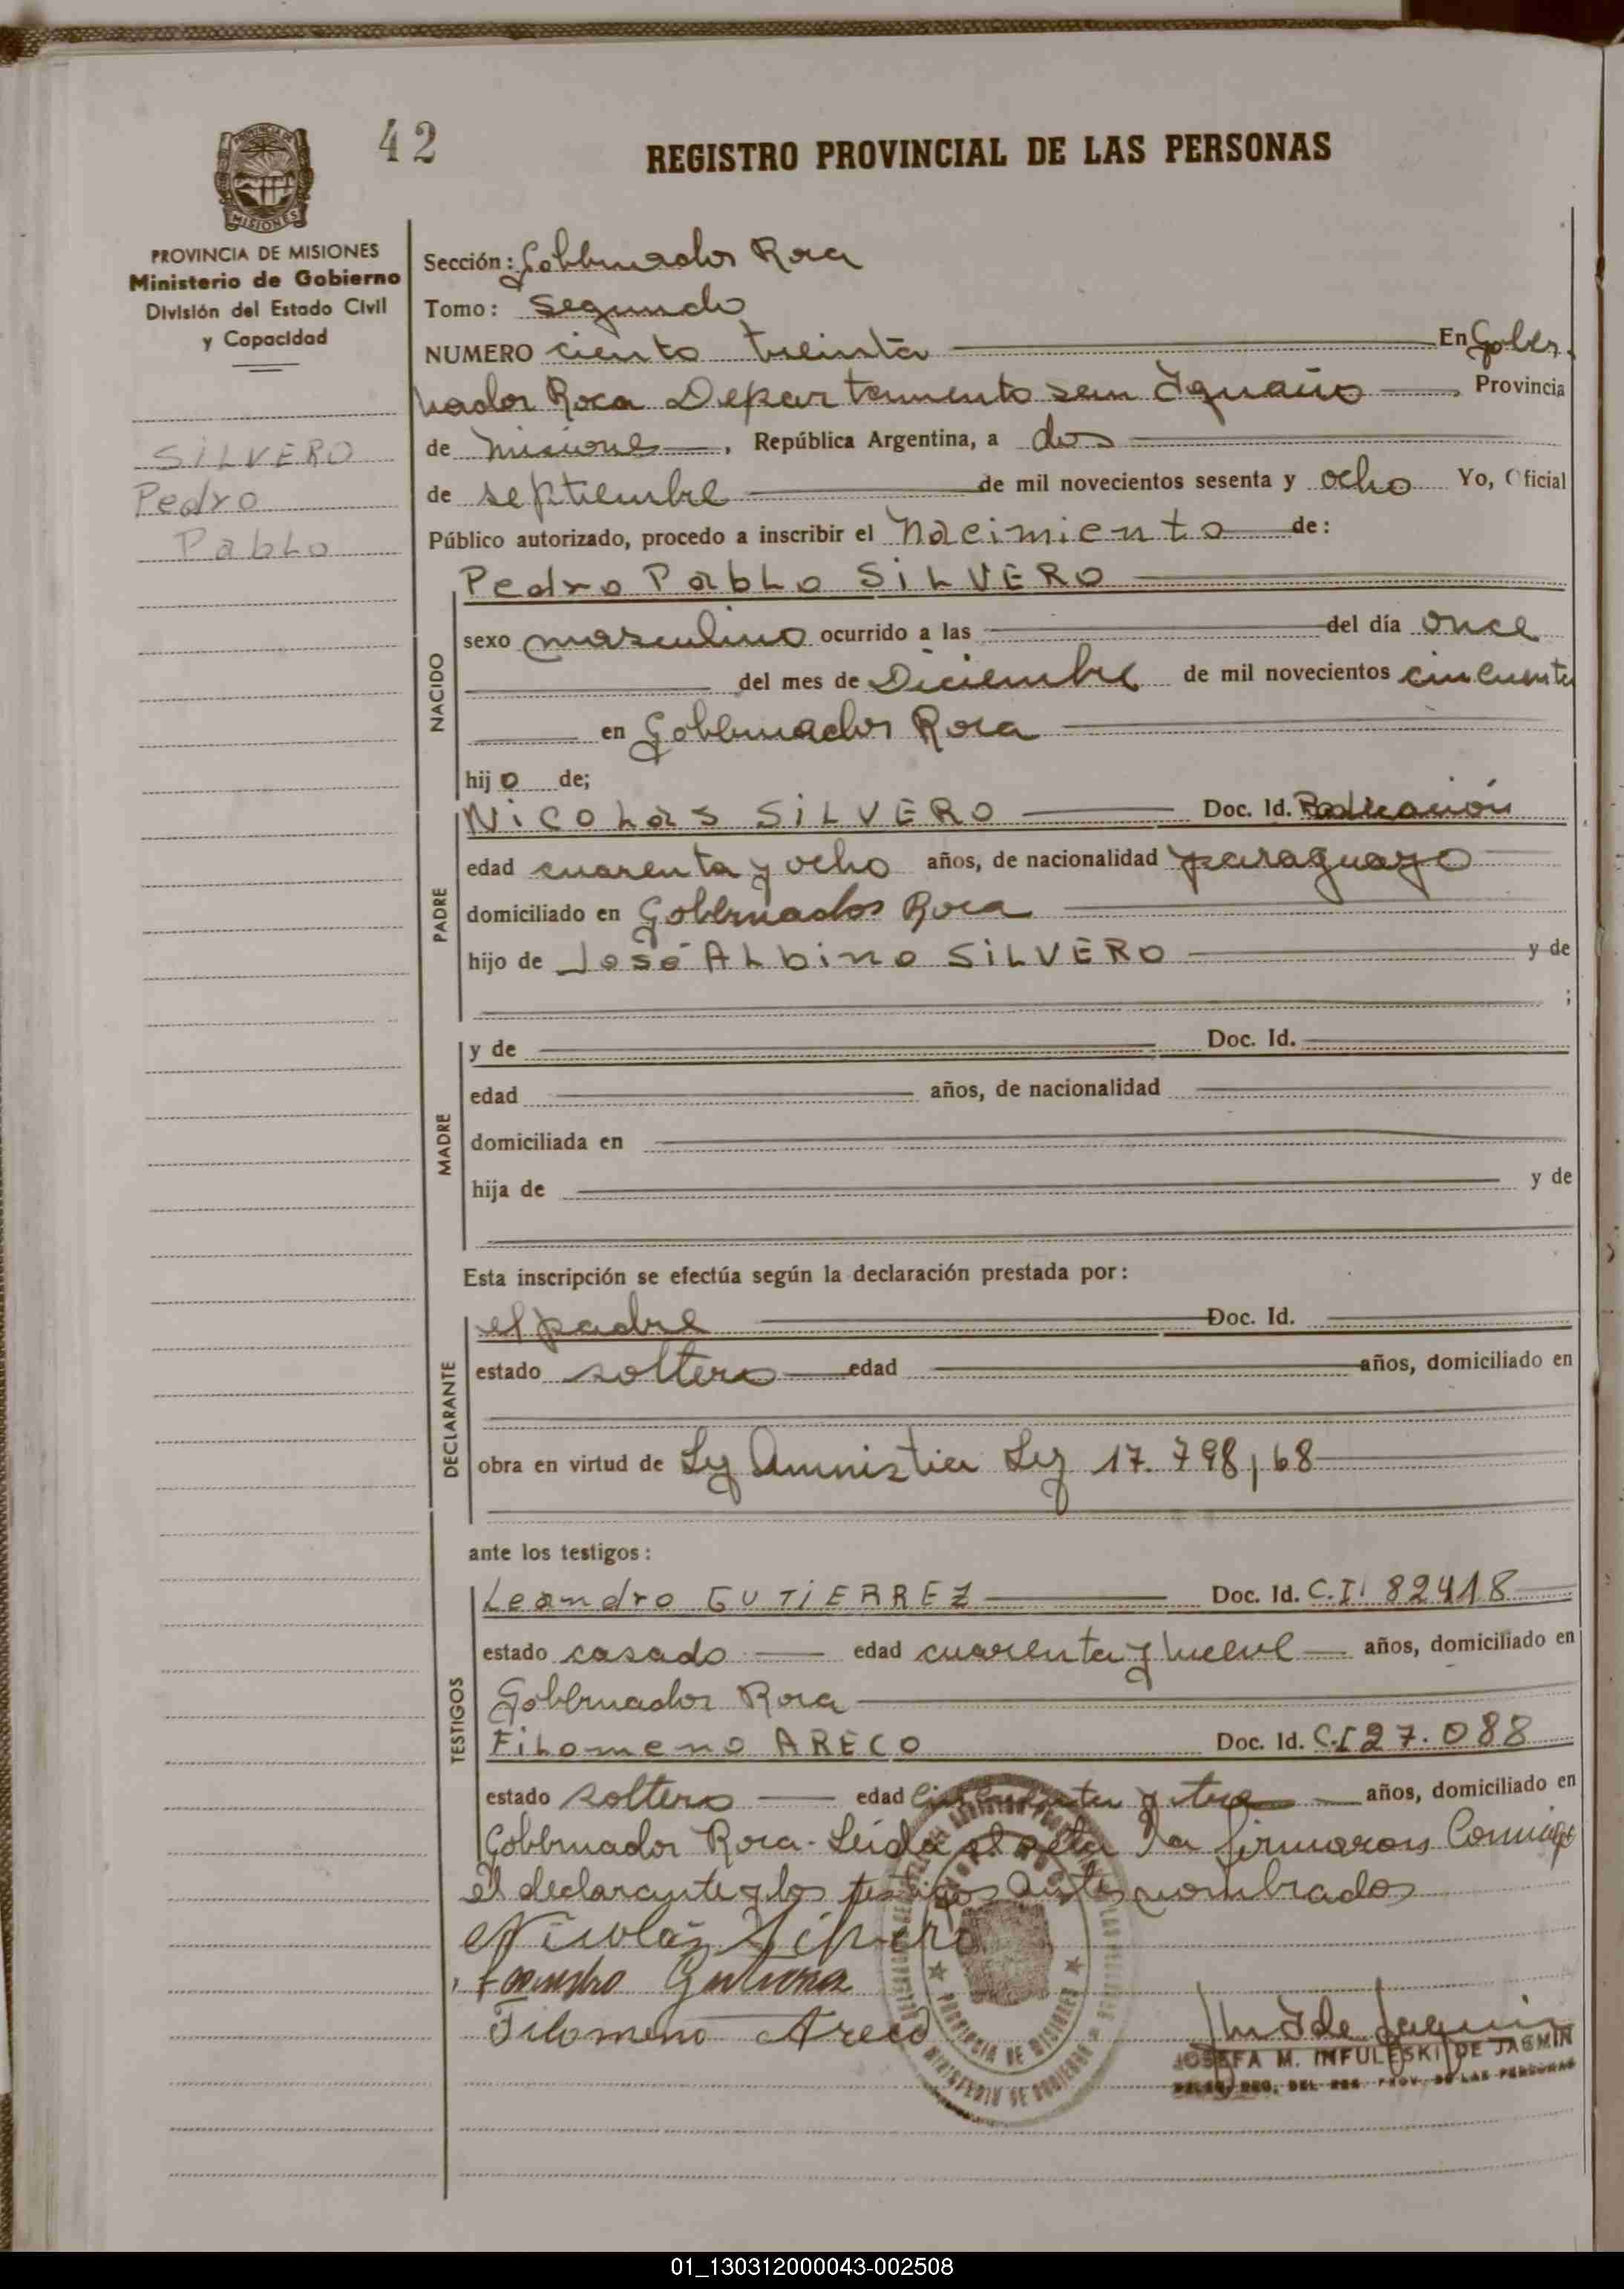 42
REGISTRO PROVINCIAL DE LAS PERSONAS
PROVINCIA DE
MISIONES
PROVINCIA DE MISIONES
Ministerio de Gobierno
División del Estado Civil
y Capacidad
SILVERO
Pedro
Pablo
Sección: Gobernador Roca
Tomo: Segundo
NUMERO ciento treinta En Gober
nador Roca Departamento San Ignacio Provincia
de Misiones, República Argentina, a dos
de septiembre de mil novecientos sesenta y ocho Yo, Oficial
Público autorizado, procedo a inscribir el Nacimiento de:
Pedro Pablo SILVERO
NACIDO
sexo masculino ocurrido a las del día once
del mes de Diciembre de mil novecientos cincuenta
en Gobernador Roca
hijo de;
PADRE
Nicolás SILVERO Doc. Id.
edad cuarenta y ocho años, de nacionalidad paraguayo
domiciliado en Gobernador Roca
hijo de José Albino SILVERO y de
;
MADRE
y de Doc. Id.
edad años, de nacionalidad
domiciliada en
hija de y de
Esta inscripción se efectúa según la declaración prestada por:
DECLARANTE
el padre Doc. Id.
estado soltero edad años, domiciliado en
obra en virtud de Ley Amnistia Ley 17.798/68
ante los testigos:
TESTIGOS
Leandro GUTIERREZ Doc. Id. C.I. 82418
estado casado edad cuarenta y nueve años, domiciliado en
Gobernador Roca
Filomeno ARECO Doc. Id. C.I 27.088
estado soltero edad cincuenta y tres años, domiciliado en
Gobernador Roca. Leida el acta la firmaron Conmigo
el declarante y los testigos antes nombrados
Nicolás Silvero
Leandro Gutierrez
Filomeno Areco
PROVINCIA DE MISIONES
MINISTERIO DE GOBIERNO
JOSEFA M. INFULESKI DE JASMIN
DEL REG. PROV. DE LAS PERSONAS
01_130312000043-002508